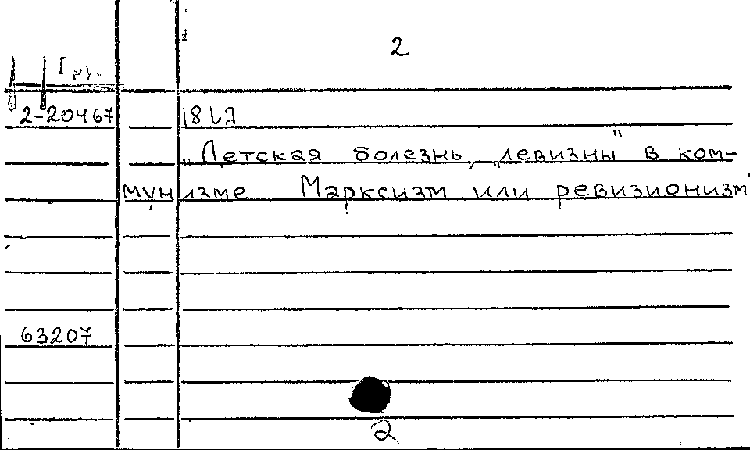 2
2-20467
„Детская болезнь „левизны" в ком-
мунизме Марксизм или ревизионизм
63207
2